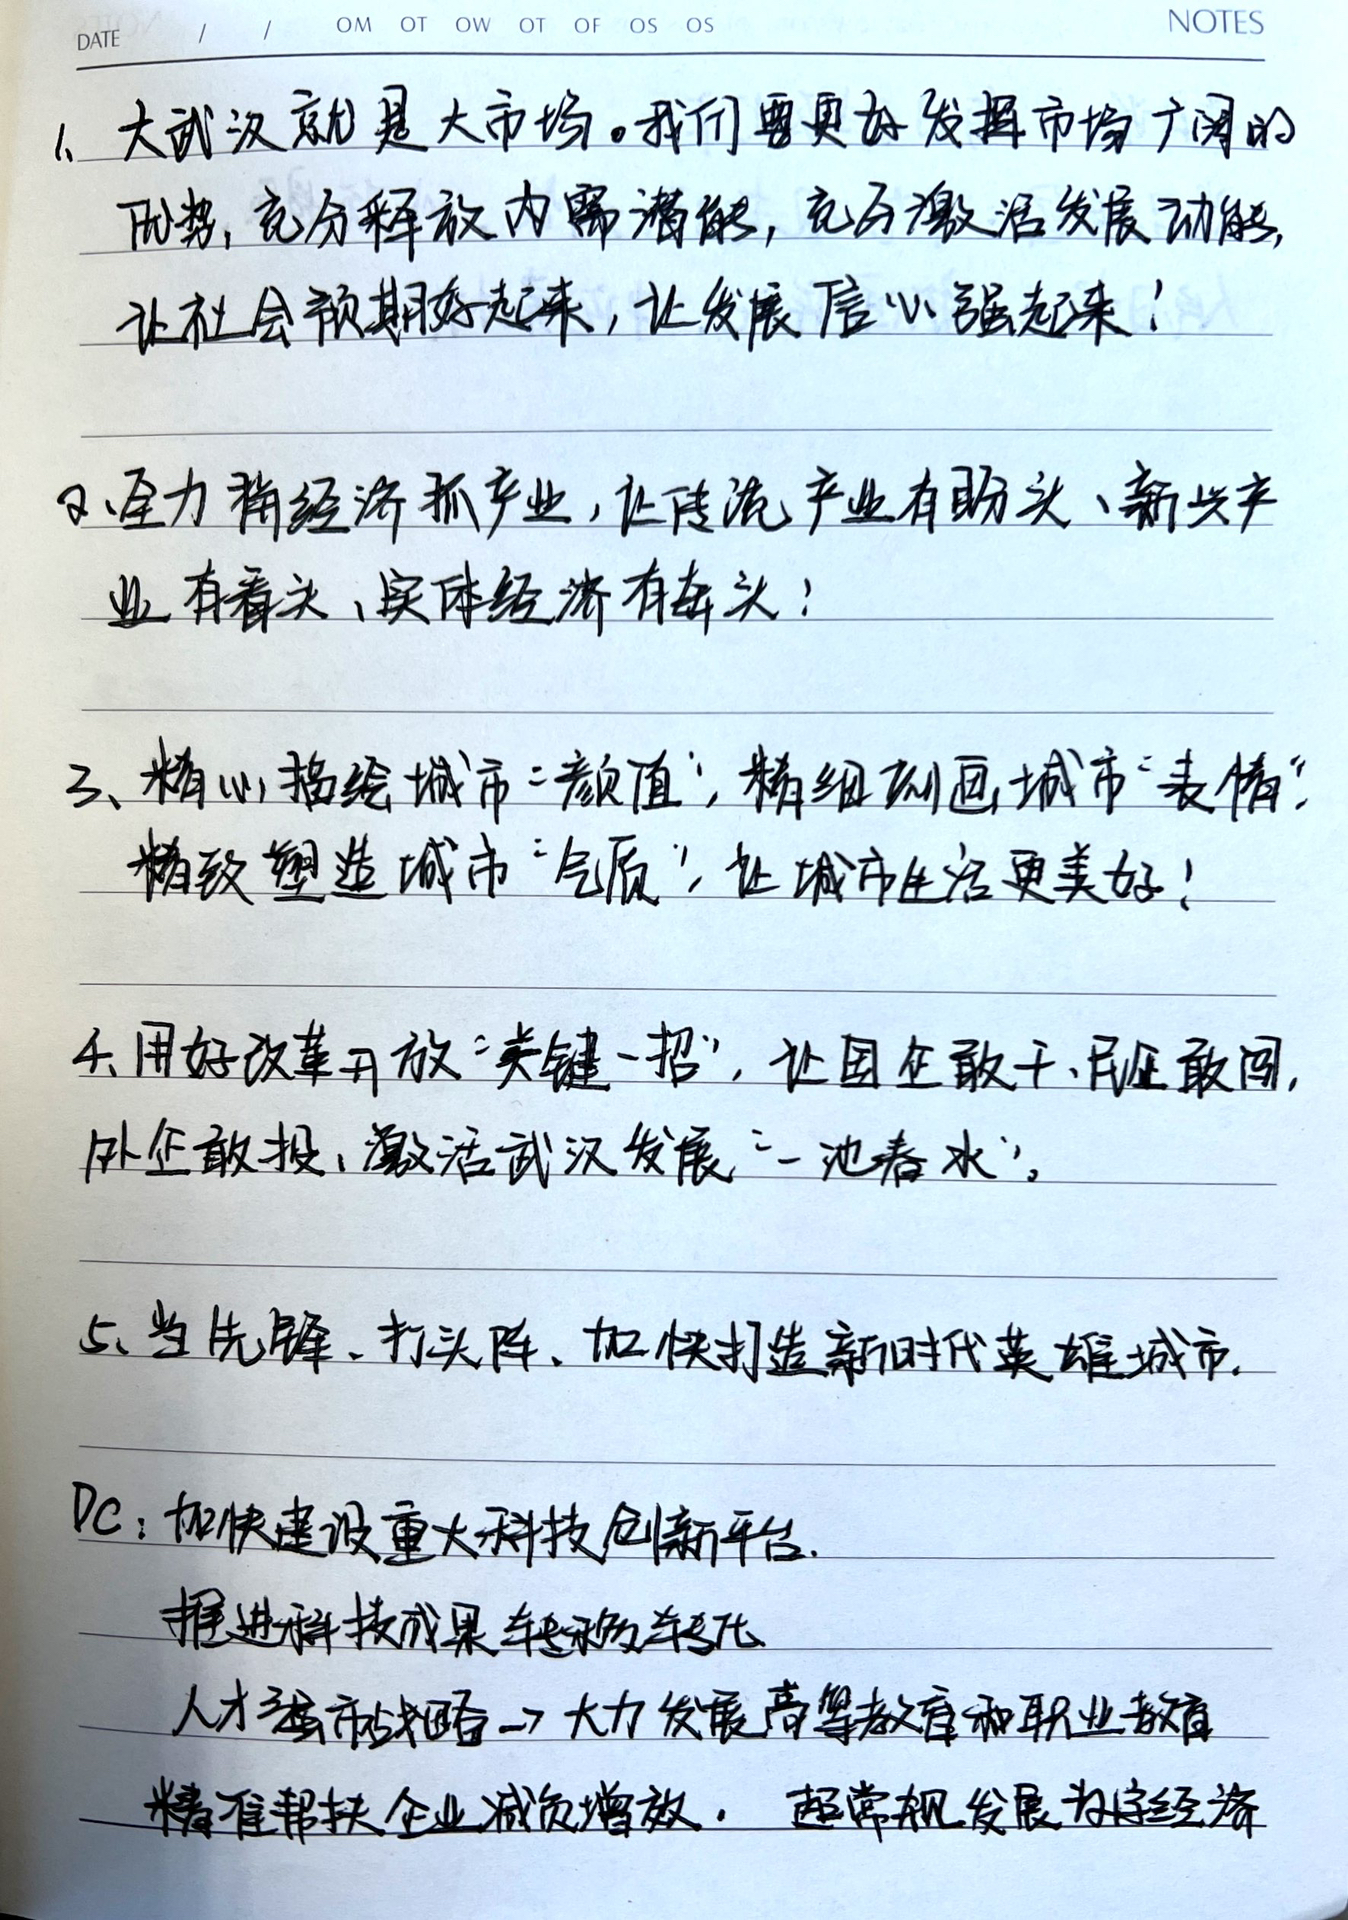 DATE / / OM OT OW OT OF OS OS NOTES
1、大武汉就是大市场。我们要更好发挥市场广阔的
优势，充分释放内需潜能，充分激活发展动能，
让社会预期好起来，让发展信心强起来！
2、全力搞经济抓产业，让传统产业有盼头、新兴产
业有看头、实体经济有奔头！
3、精心描绘城市“颜值”，精细刻画城市“表情”，
精致塑造城市“气质”，让城市生活更美好！
4、用好改革开放“关键一招”，让国企敢干、民企敢闯，
外企敢投、激活武汉发展“一池春水”。
5、当先锋、打头阵、加快打造新时代英雄城市.
DC：加快建设重大科技创新平台.
推进科技成果转移转化
人才强市战略→大力发展高等教育和职业教育
精准帮扶企业减负增效. 超常规发展数字经济